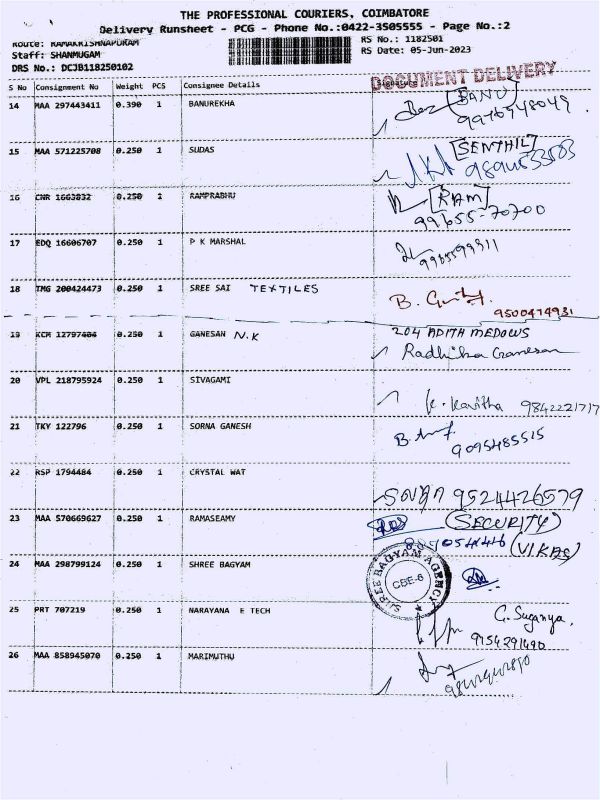 THE PROFESSIONAL COURIERS, COIMBATORE
Delivery Runsheet - PCG - Phone No.:0422-3505555 - Page No.:2
Route: RAMAKRISHNAPURAM RS No.: 1182501
Staff: SHANMUGAM RS Date: 05-Jun-2023
DRS No.: DCJB118250102
DOCUMENT DELIVERY
S No Consignment No Weight PCS Consignee Details Signature
14 MAA 297443411 0.390 1 BANUREKHA [BANU]
15 MAA 571225708 0.250 1 SUDAS [SENTHIL]
16 CNR 1663832 0.250 1 RAMPRABHU [RAM]
99655-70700
17 EDQ 16606707 0.250 1 P K MARSHAL
18 TMG 200424473 0.250 1 SREE SAI TEXTILES B.
9500474931
19 KCM 12797404 0.250 1 GANESAN N.K 204 ADITH MEDOWS
Radhika Ganesan
20 VPL 218795924 0.250 1 SIVAGAMI K. Kavitha 9842221717
21 TKY 122796 0.250 1 SORNA GANESH B.
9095485515
22 RSP 1794484 0.250 1 CRYSTAL WAT
9524426579
23 MAA 570669627 0.250 1 RAMASEAMY (SECURITY)
(VIKAS)
24 MAA 298799124 0.250 1 SHREE BAGYAM SHREE BAGYAM AGENCY CBE-6
25 PRT 707219 0.250 1 NARAYANA E TECH G. Suganya,
9154291490
26 MAA 858945070 0.250 1 MARIMUTHU